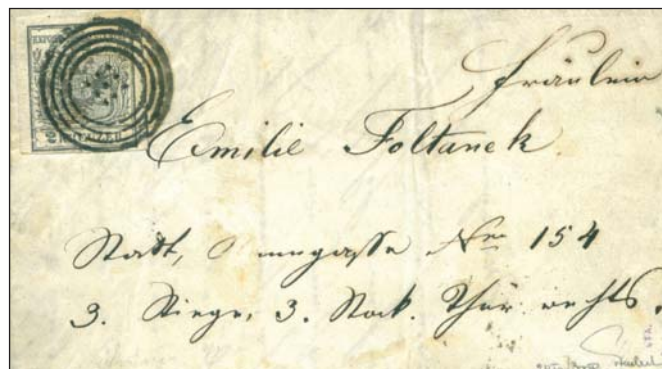 Fräulein
Emilie Foltanek.
Stadt, No 154
3. Stiege, 3. Stock. Thür rechts.